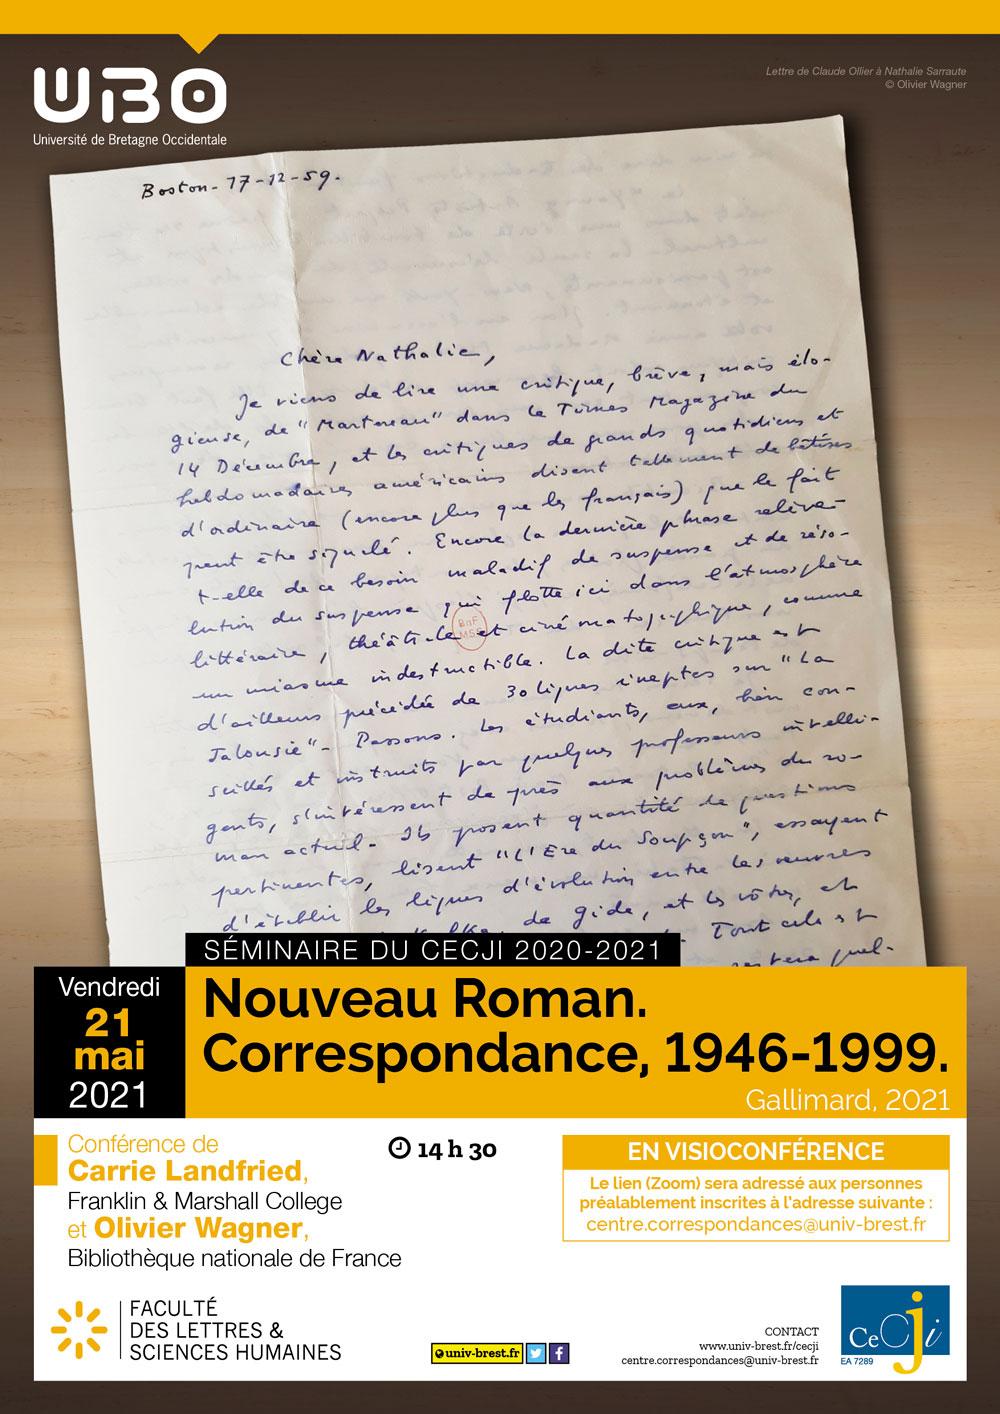 UBO
Université de Bretagne Occidentale
Lettre de Claude Ollier à Nathalie Sarraute
© Olivier Wagner
Boston - 17-12-59.
Chère Nathalie,
Je viens de lire une critique, brève, mais élo-
gieuse, de "Martereau" dans le Times Magazine du
14 Décembre, et les critiques de grands quotidiens et
hebdomadaires américains disent tellement de bêtises
d'ordinaire (encore plus que les français) que le fait
peut être signalé. Encore la dernière phrase relève-
t-elle de ce besoin maladif de suspense et de réso-
lution du suspense qui flotte ici dans l'atmosphère
littéraire, théâtrale et cinématographique, comme
un miasme indestructible. La dite critique est
d'ailleurs précédée de 30 lignes ineptes sur "La
Jalousie" - Passons. Les étudiants, eux, bien con-
seillés et instruits par quelques professeurs intelli-
gents, s'intéressent de près aux problèmes du ro-
man actuel - Ils posent quantité de questions
pertinentes, lisent "L'Ere du Soupçon", essayent
d'établir les lignes d'évolution entre les œuvres
de Gide, et les vôtres, et
Tout cela est
restera quel-
BnF
MSS
SÉMINAIRE DU CECJI 2020-2021
Vendredi
21
mai
2021
Nouveau Roman.
Correspondance, 1946-1999.
Gallimard, 2021
Conférence de
Carrie Landfried,
Franklin & Marshall College
et Olivier Wagner,
Bibliothèque nationale de France
14 h 30
EN VISIOCONFÉRENCE
Le lien (Zoom) sera adressé aux personnes
préalablement inscrites à l'adresse suivante :
centre.correspondances@univ-brest.fr
FACULTÉ
DES LETTRES &
SCIENCES HUMAINES
univ-brest.fr
CONTACT
www.univ-brest.fr/cecji
centre.correspondances@univ-brest.fr
CeCji
EA 7289